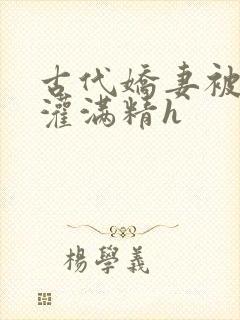 古代嬌妻被
灌滿精h
楊學義